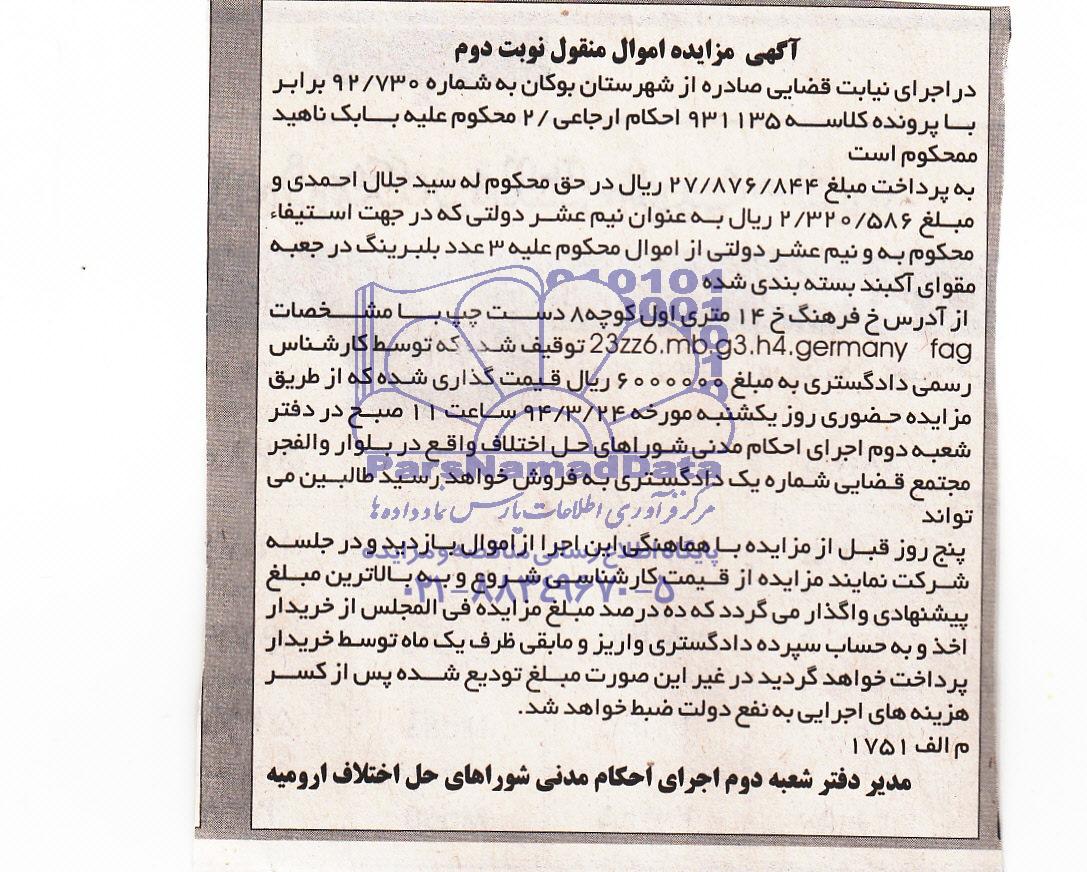 آگهی مزایده اموال منقول نوبت دوم
در اجرای نیابت قضایی صادره از شهرستان بوکان به شماره ۹۲/۷۳۰ برابر
با پرونده کلاسه ۹۳۱۱۳۵ احکام ارجاعی /۲ محکوم علیه بابک ناهید
ممحکوم است
به پرداخت مبلغ ۲۷/۸۷۶/۸۴۴ ریال در حق محکوم له سید جلال احمدی و
مبلغ ۲/۳۲۰/۵۸۶ ریال به عنوان نیم عشر دولتی که در جهت استیفاء
محکوم به و نیم عشر دولتی از اموال محکوم علیه ۳ عدد بلبرینگ در جعبه
مقوای آکبند بسته بندی شده
از آدرس خ فرهنگ خ ۱۴ متری اول کوچه۸ دست چپ با مشخصات
23zz6.mb.g3.h4.germany fag توقیف شد که توسط کارشناس
رسمی دادگستری به مبلغ ۶۰۰۰۰۰۰ ریال قیمت گذاری شده که از طریق
مزایده حضوری روز یکشنبه مورخه ۹۴/۳/۲۴ ساعت ۱۱ صبح در دفتر
شعبه دوم اجرای احکام مدنی شوراهای حل اختلاف واقع در بلوار والفجر
ParsNamadData
مجتمع قضایی شماره یک دادگستری به فروش خواهد رسید طالبین می
تواند
مرکز فرآوری اطلاعات پارس نماد داده ها
پنج روز قبل از مزایده با هماهنگی این اجرا از اموال بازدید و در جلسه
پایگاه اطلاع رسانی مناقصه و مزایده
شرکت نمایند مزایده از قیمت کارشناسی شروع و به بالاترین مبلغ
۰۲۱-۸۸۳۴۹۶۷۰-۵
پیشنهادی واگذار می گردد که ده درصد مبلغ مزایده فی المجلس از خریدار
اخذ و به حساب سپرده دادگستری واریز و مابقی ظرف یک ماه توسط خریدار
پرداخت خواهد گردید در غیر این صورت مبلغ تودیع شده پس از کسر
هزینه های اجرایی به نفع دولت ضبط خواهد شد.
م الف ۱۷۵۱
مدیر دفتر شعبه دوم اجرای احکام مدنی شوراهای حل اختلاف ارومیه